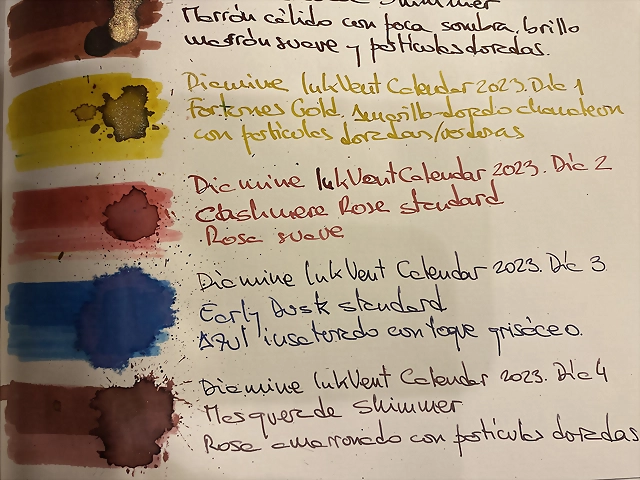 Shimmer
Marrón cálido con poca sombra, brillo
marrón suave y partículas doradas.
Diamine InkVent Calendar 2023. Día 1
Gold. Amarillo-dorado chamaleon
con partículas doradas/verdosas
Diamine InkVent Calendar 2023. Día 2
Cashmere Rose standard
Rosa suave
Diamine InkVent Calendar 2023. Día 3
Early Dusk standard
Azul insaturado con toque grisáceo.
Diamine InkVent Calendar 2023. Día 4
Masquerade Shimmer
Rosa amarronado con partículas doradas